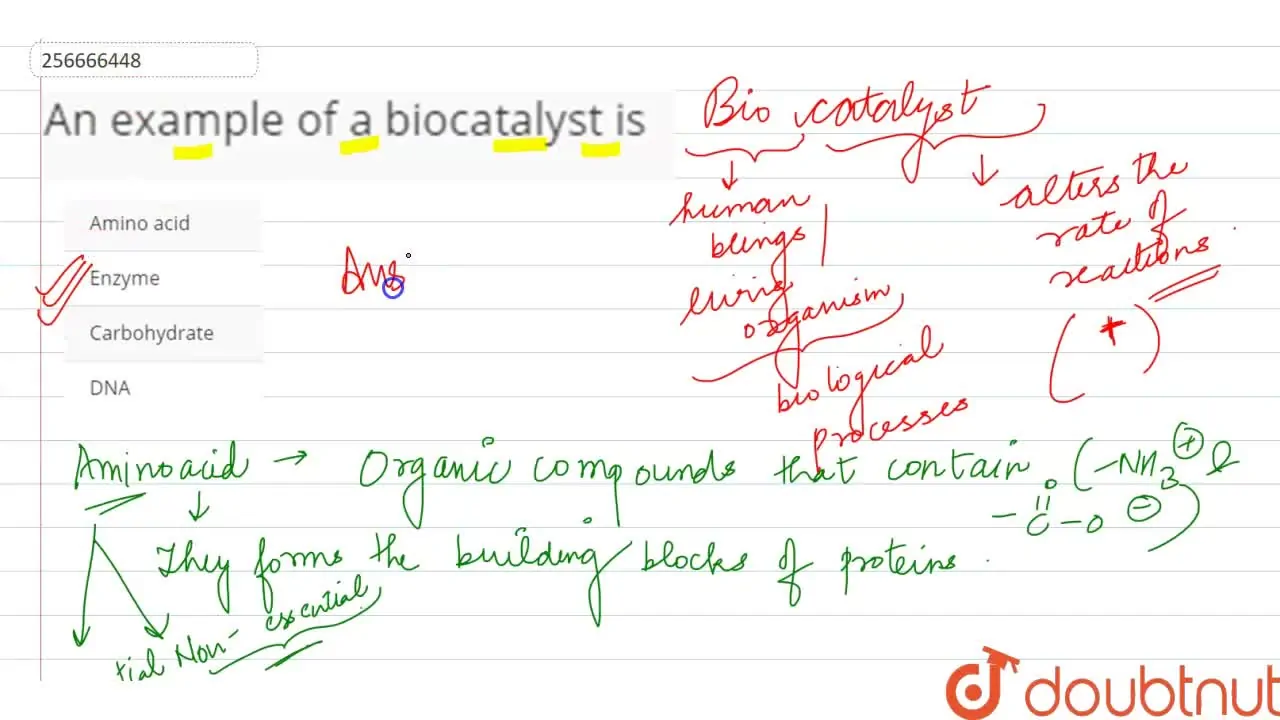 256666448
An example of a biocatalyst is
Amino acid
Enzyme
Carbohydrate
DNA
Ans
Bio catalyst
human
beings
living
organism
biological
processes
alters the
rate of
reactions
(+)
Amino acid → Organic compounds that contain (-NH3⊕ &
O
- C - O ⊖)
They forms the building blocks of proteins.
tial Non- essential
doubtnut